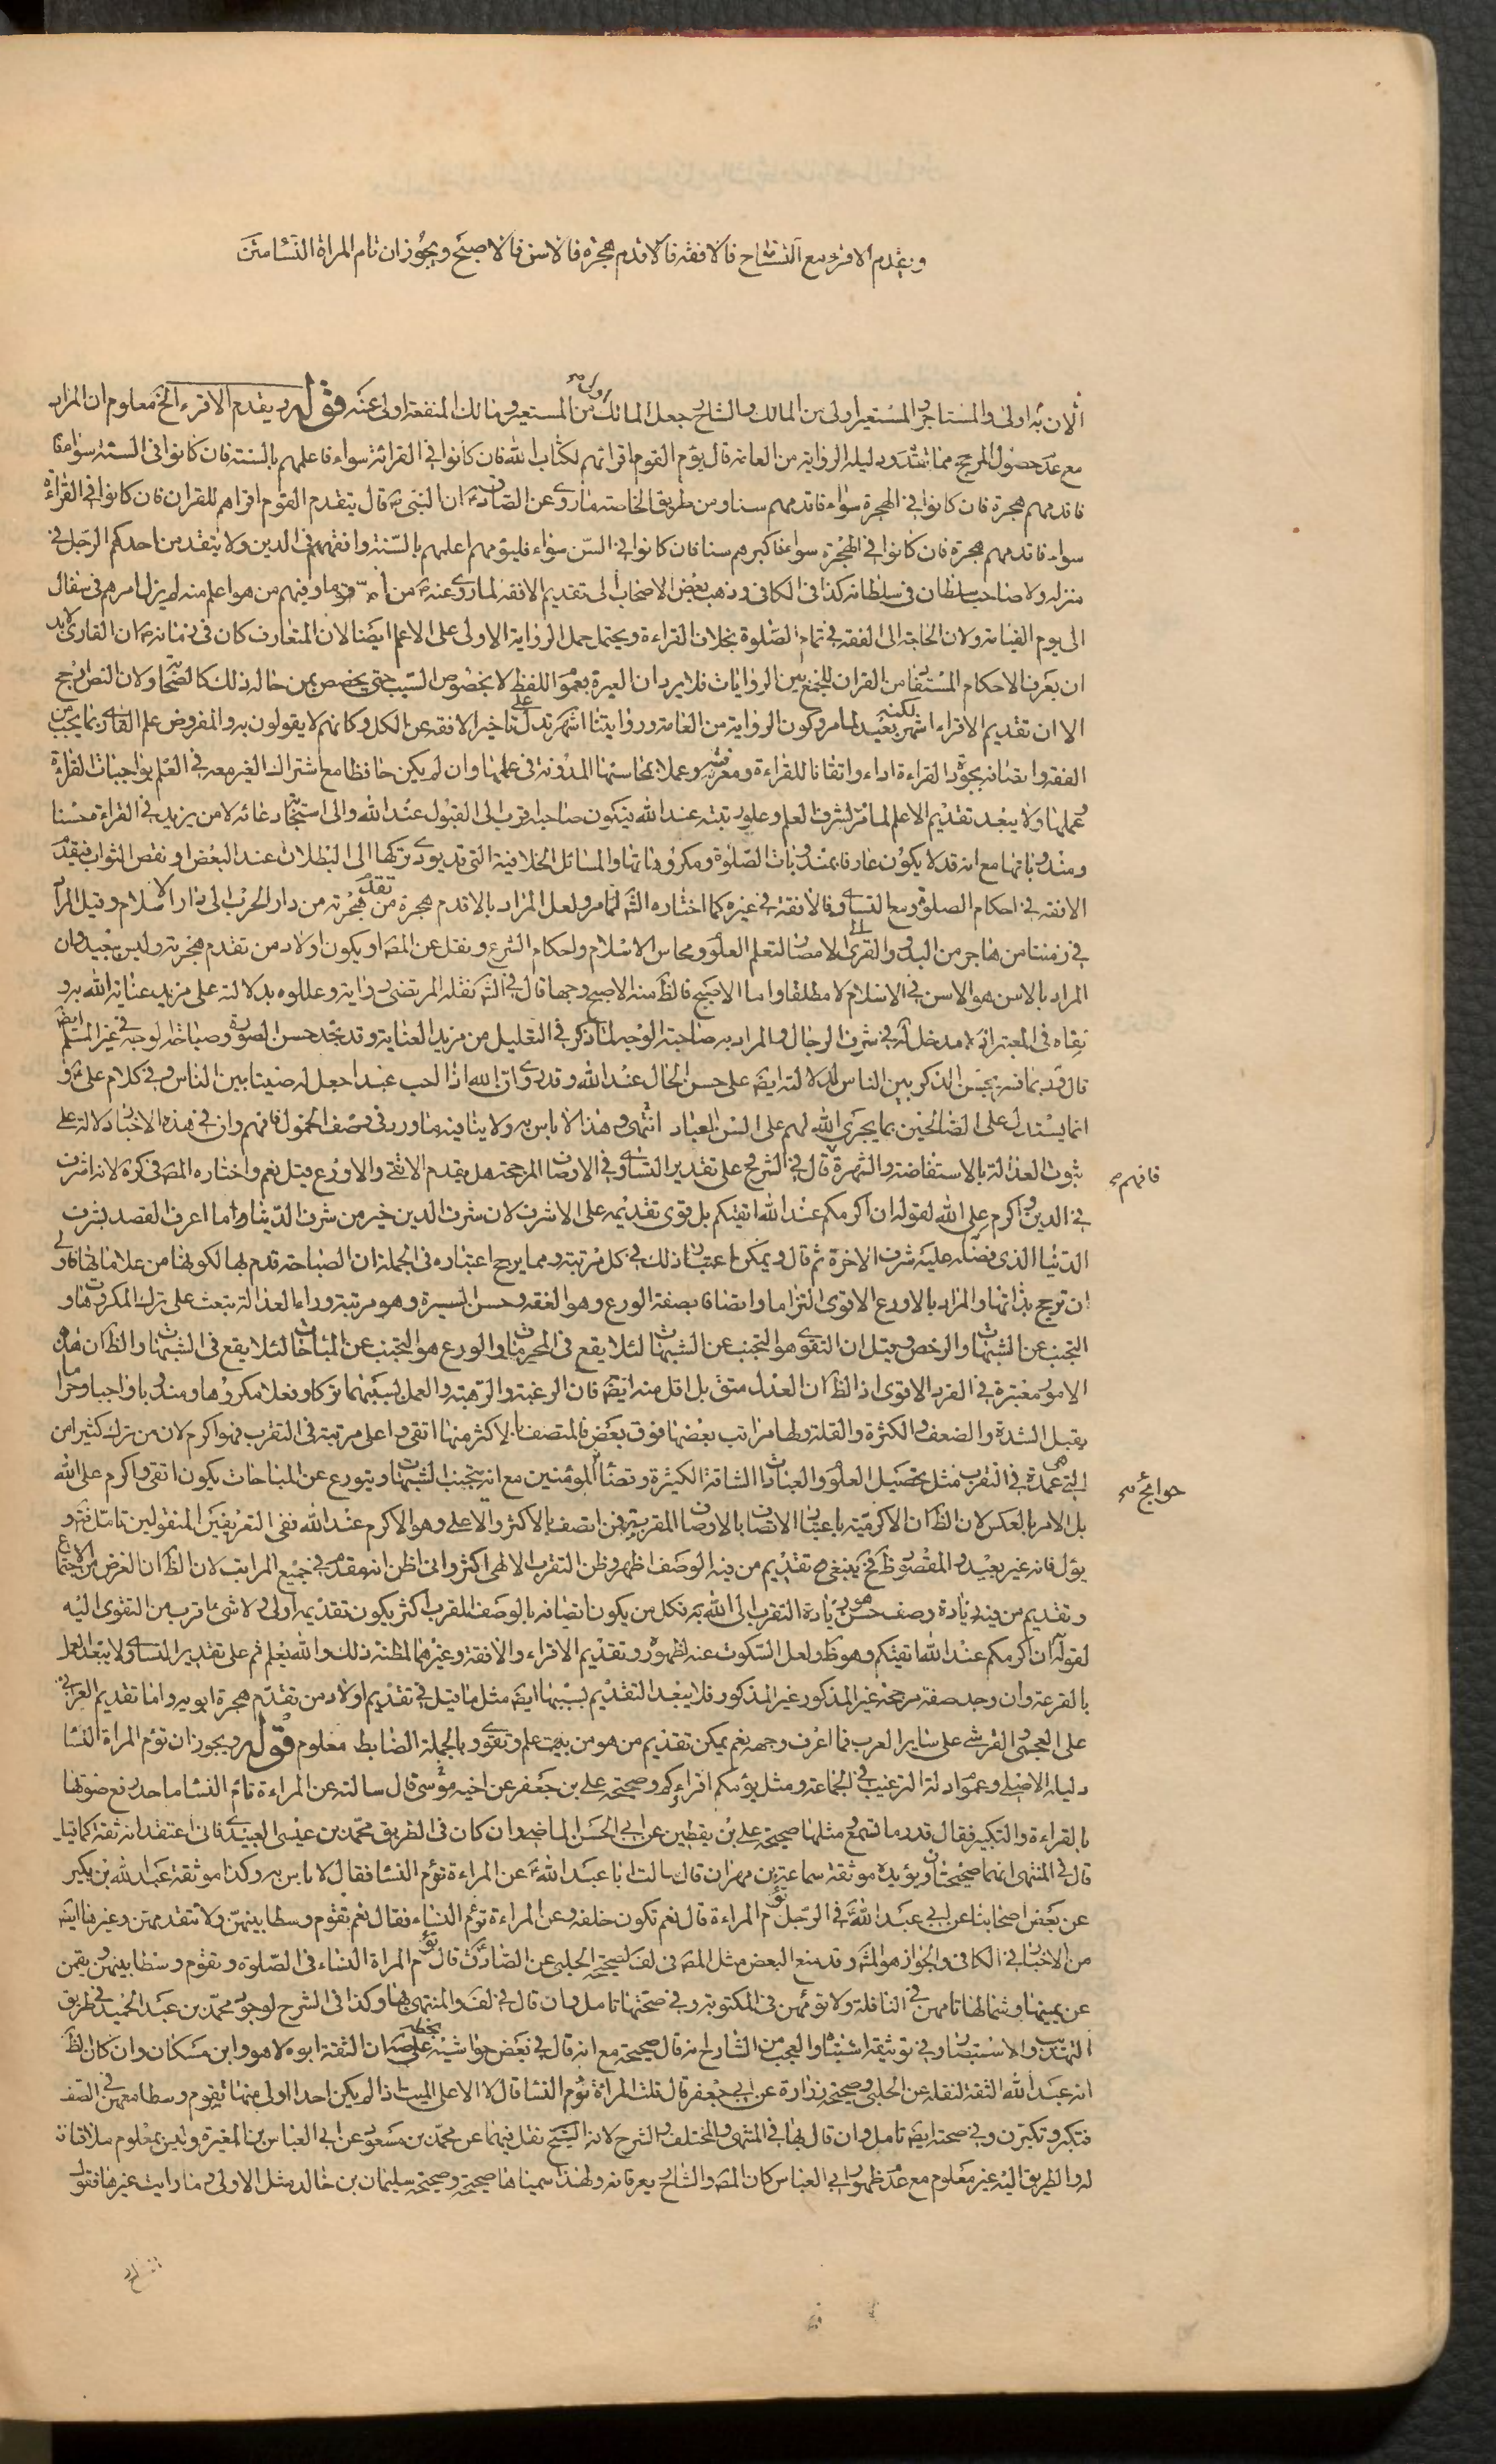 ويقدم الاقرء مع التشاح فالافقه فالاقدم هجرة فالاسن فالاصبح ويجوز ان تام المراة النسا
اولى
الاذن به اولى والمستاجر والمستعير اولى من المالك والشارح جعل المالك من المستعير ومالك المنفعة اولى عنه قوله ويقدم الاقرء الخ معلوم ان المراد
مع عدم حصول المرجح مما تقدم ودليله الرواية من العامة قال يؤم القوم اقرائهم لكتاب الله فان كانوا في القرائة سواء فاعلمهم بالسنة فان كانوا في السنة سواء
فاقدمهم هجرة فان كانوا في الهجرة سواء فاقدمهم سنا ومن طريق الخاصة ماروى عن الصادق ان النبي قال يتقدم القوم اقراهم للقران فان كانوا في القراءة
سواء فاقدمهم هجرة فان كانوا في الهجرة سواء فاكبرهم سنا فان كانوا في السن سواء فليؤمهم اعلمهم بالسنة وافقههم في الدين ولا يتقدمن احدكم الرجل في
منزله ولا صاحب سلطان في سلطانه كذا في الكافي وذهب بعض الاصحاب الى تقديم الافقه لماروى عنه من ام قوما وفيهم من هو اعلم منه لم يزل امرهم في سفال
الى يوم القيامة ولان الحاجة الى الفقه في تمام الصلوة بخلاف القراءة ويحتمل حمل الرواية الاولى على الاعلم ايضا لان المتعارف كان في زمانه ان القارئ لابد
ان يعرف الاحكام المستفادة من القران للجمع بين الروايات فلايرد ان العبرة بعموم اللفظ لا بخصوص السبب حتى يخصص بمن حاله ذلك كالصحابة ولان النص ارجح
الا ان تقديم الاقراء اشهر لكنه بعيد لمامر وكون الرواية من العامة وروايتنا اشهر تدل على تاخير الافقه عن الكل وكانهم لا يقولون به والمفروض علم القارى بما يجب من
الفقه واتصافه بجودة القراءة اداء واتقانا للقراءة ومعرفة وعملا بمحاسنها المدونة في علمها وان لم يكن حافظا مع اشتراك الغير معه في العلم بواجبات القراءة
وعملها ولا يبعد تقديم الاعلم لمامر لشرف العلم وعلو رتبته عند الله فيكون صاحبه اقرب الى القبول عند الله والى استجابة دعائه لا من يزيد في القراءة محسنا
ومندوباتها مع انه قد لا يكون عارفا بمندوبات الصلوة ومكروهاتها والمسائل الخلافية التي قد يودى تركها الى البطلان عند البعض او نقص الثواب فيقدم
الافقه في احكام الصلوة ومع التساوى فالافقه في غيره كما اختاره الش لمامر ولعل المراد بالاقدم هجرة من تقدم هجرته من دار الحرب الى دار الاسلام وقيل المراد
في زمننا من هاجر من البدو والقرى الى الامصار لتعلم العلوم ومحاسن الاسلام واحكام الشرع ونقل عن المص او يكون اولاد من تقدم هجرته وليس ببعيد وان
المراد بالاسن هو الاسن في الاسلام لا مطلقا واما الاصبح فالظ منه الاصبح وجها قال في الش نقله المرتضى رواية وعللوه بدلالته على مزيد عناية الله به و
نفاه في المعتبر اذ لا مدخل له في شرف الرجال والمراد به صاحبة الوجه لماذكر في التعليل من مزيد العناية وقد تجد حسن الصورة وصباحة الوجه في غير المسلم ايض
قال وربما فسر بحسن الذكر بين الناس لدلالته ايض على حسن الحال عند الله وقدروى ان الله اذا احب عبدا جعل له صيتا بين الناس وفي كلام على و
انما يستدل على الصالحين بما يجرى الله لهم على السن العباد انتهى وهذا لا باس به ولا ينافيه ماورد في وصف الخمول فافهم وان في هذه الاخبار دلالة على
ثبوت العدالة بالاستفاضة والشهرة قال في الشرح على تقدير التساوى في الاوصاف المرجحة هل يقدم الاتقى والاورع قيل نعم واختاره المص في كره لانه اشرف
فافهم
في الدين واكرم على الله لقوله ان اكرمكم عند الله اتقيكم بل قوى تقديمه على الاشرف لان شرف الدين خير من شرف الدنيا واما اعرف القصد بشرف
الدنيا الذى فضله عليه شرف الاخرة ثم قال ويمكن اعتبار ذلك في كل مرتبة ومما يرجح اعتباره في الجملة ان الصباحة قدم بها لكونها من علاماتها فاولى
ان ترجح بذاتها والمراد بالاورع الاقوى التزاما واتصافا بصفة الورع وهو الفقه وحسن السيرة وهو مرتبة وراء العدالة تبعث على ترك المكروهات و
التجنب عن الشبهات والرخص وقيل ان التقوى هو التجنب عن الشبهات لئلا يقع في المحرمات والورع هو التجنب عن المباحات لئلا يقع في الشبهات والظ ان هذه
الامور معتبرة في الفرد الاقوى اذ الظ ان العدل متق بل اقل منه ايض فان الرغبة والرهبة والعمل بسببهما تركا وفعلا مكروها ومندوبا واجبا وحراما
يقبل الشدة والضعف والكثرة والقلة ولها مراتب بعضها فوق بعض فالمتصف بالاكثر منها اتقى واعلى مرتبة في التقرب فهو اكرم لان من ترك كثيرا من
التي هي عمدة في التقرب مثل تحصيل العلوم والعبادات الشاقة الكثيرة وقضاء المؤمنين مع انه يتجنب الشبهات ويتورع عن المباحات يكون اتقى واكرم على الله
حوائج
بل الامر بالعكس لان الظ ان الاكرمية باعتبار الاتصاف بالاوصاف المقربة فمن اتصف بالاكثر والاعلى وهو الاكرم عند الله ففي التعريفين المنقولين تامل فت و
يؤل فانه غير بعيد والمقصود ظ فح ينبغي تقديم من فيه الوصف اظهر وظن التقرب الالهى اكثر وانى اظن انه مقدم في جميع المراتب لان الظ ان الغرض من الاجتماع
وتقديم من فيه زيادة وصف حسن هو زيادة التقرب الى الله به فكل من يكون اتصافه بالوصف المقرب اكثر يكون تقديمه اولى ولا شئ اقرب من التقوى اليه
لقوله ان اكرمكم عند الله اتقيكم وهو ظ ولعل السكوت عنه لظهوره وتقديم الاقراء والافقه وغيرهما لمظنة ذلك والله يعلم ثم على تقدير التساوى لا يبعد العمل
بالقرعة وان وجد صفة مرجحة غير المذكور غير المذكور فلا يبعد التقديم بسببها ايض مثل ماقيل في تقديم اولاد من تقدم هجرة ابويه واما تقديم العربي
على العجمى والقرشى على ساير العرب فما اعرف وجهه نعم يمكن تقديم من هو من بيت علم وتقوى وبالجملة الضابط معلوم قوله ويجوز ان تؤم المراة النسا
دليله الاصل وعموم ادلة الترغيب في الجماعة ومثل يؤمكم اقراءكم وصحيحة على بن جعفر عن اخيه موسى قال سالته عن المراءة تام النسا ماحد رفع صوتها
بالقراءة والتكبير فقال قدر ما تسمع ومثلها صحيحة على بن يقطين عن ابى الحسن الماضى وان كان في الطريق محمد بن عيسى العبيدى فانى اعتقد انه ثقة كماقيل
قال في المنتهى انهما صحيحتان ويؤيده موثقة سماعة بن مهران قال سالت ابا عبد الله عن المراءة تؤم النسا فقال لا باس به وكذا موثقة عبد الله بن بكير
عن بعض اصحابنا عن ابى عبد الله في الرجل يؤم المراءة قال نعم تكون خلفه وعن المراءة تؤم النساء فقال نعم تقوم وسطا بينهن ولا تتقدمهن وغيرها ايض
من الاخبار في الكافى والجواز هو الش وقد منع البعض مثل المص في لف لصحيحة الحلبى عن الصادق قال تؤم المراة النساء في الصلوة وتقوم وسطا بينهن يقمن
عن يمينها وشمالها تامهن في النافلة ولا تؤمهن في المكتوبة وفي صحتها تامل وان قال في لف والمنتهى بها وكذا في الشرح لوجود محمد بن عبد الحميد في طريق
التهذيب والاستبصار وفي توثيقه اشتباه والعجب من الشارح انه قال صحيحة مع انه قال في بعض حواشيه بخطه على صه ان الثقة ابوه لا هو وابن مسكان وان كان الظ
انه عبد الله الثقة لنقله عن الحلبى وصحيحة زرارة عن ابى جعفر قال قلت المراة تؤم النسا قال لا الا على الميت اذا لم يكن احد اولى منها تقوم وسطا معهن في الصف
فتكبر وتكبرن وفي صحته ايض تامل وان قال بها في المنتهى والمختلف والشرح لان الشيخ نقل فيهما عن محمد بن مسعود عن ابى العباس بن المغيرة وليس بمعلوم ملاقاته
له والطريق اليه غير معلوم مع عدم ظهور ابى العباس كان المص والشارح يعرفانه ولهذا سميناها صحيحة وصحيحة سليمان بن خالد مثل الاولى وما رايت غيرها فنقول